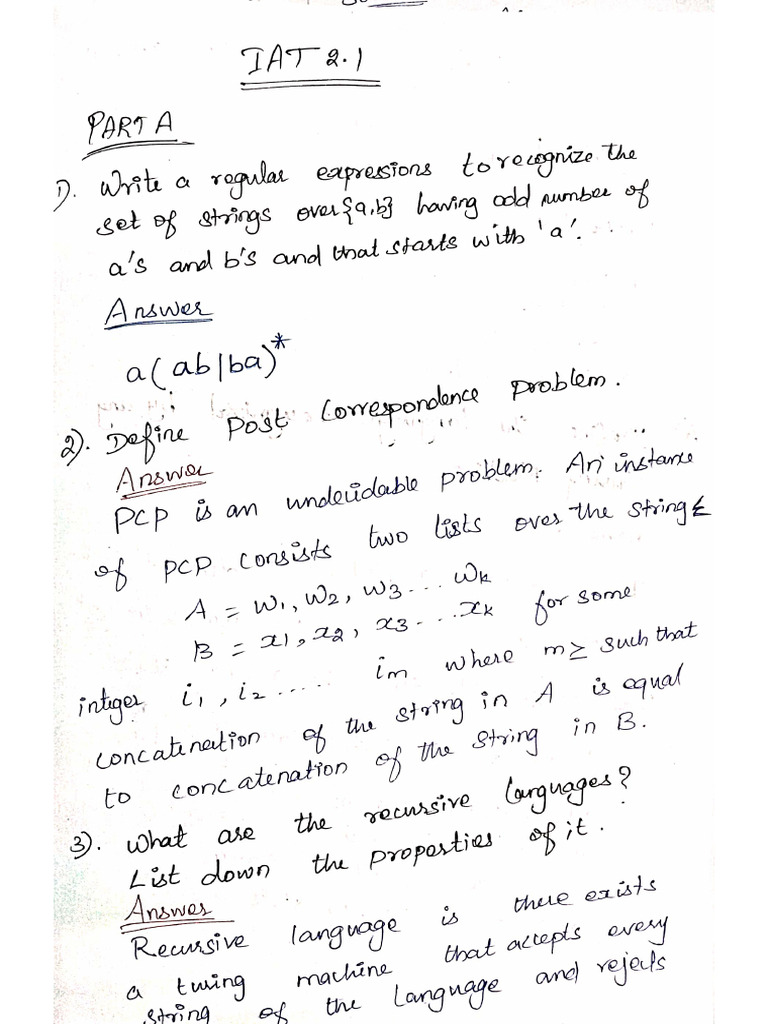 IAT 2.1
PART A
1). Write a regular expressions to recognize the
set of strings over {a,b} having odd number of
a's and b's and that starts with 'a'.
Answer
a(ab|ba)*
2). Define Post Correspondence Problem.
Answer
PCP is an undecidable problem. An instance
of PCP consists two lists over the string Σ
A = w1, w2, w3 ... wk
B = x1, x2, x3 ... xk for some
integer, i1, i2 ..... im where m≥ such that
concatenation of the string in A is equal
to concatenation of the string in B.
3). What are the recursive languages?
List down the properties of it.
Answer
Recursive language is there exists
a turing machine that accepts every
string of the language and rejects